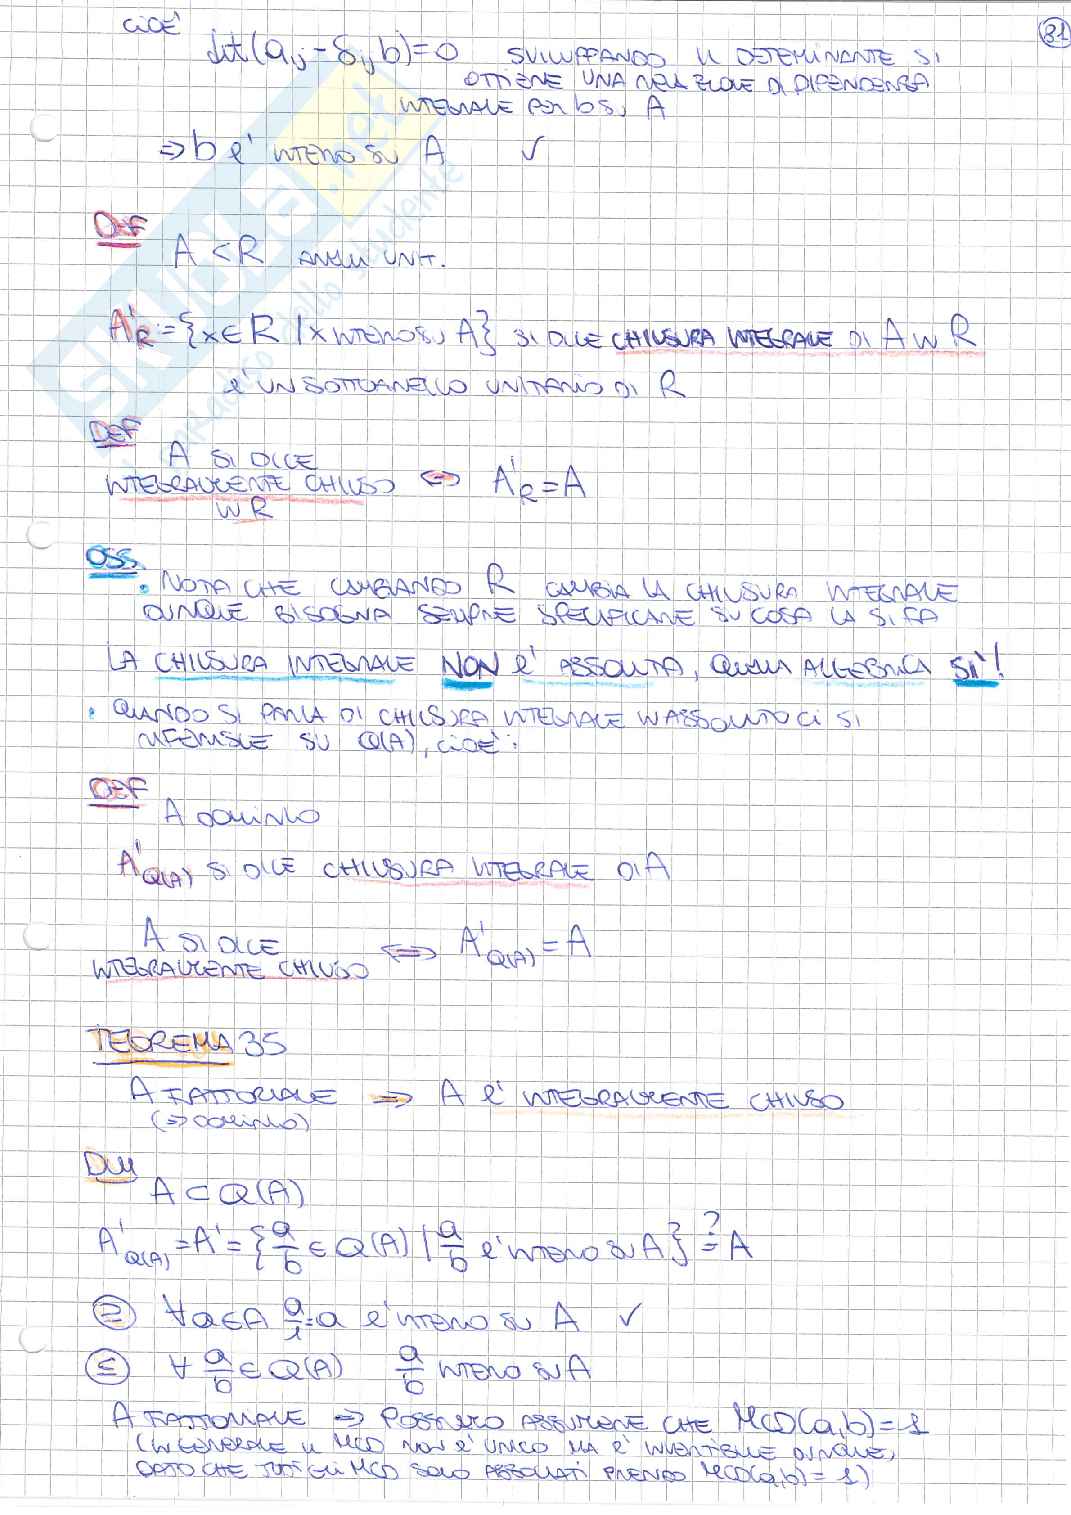 31
CIOÈ
det(a_ij - δ_ij b) = 0 SVILUPPANDO IL DETERMINANTE SI
OTTIENE UNA RELAZIONE DI DIPENDENZA
INTEGRALE PER b SU A
⇒ b È INTERO SU A ✓
DEF
A ⊂ R ANELLI UNIT.
A'_R := {x ∈ R | x INTERO SU A} SI DICE CHIUSURA INTEGRALE DI A IN R
È UN SOTTOANELLO UNITARIO DI R
DEF
A SI DICE
INTEGRALMENTE CHIUSO ⇔ A'_R = A
IN R
OSS.
• NOTA CHE CAMBIANDO R CAMBIA LA CHIUSURA INTEGRALE
DUNQUE BISOGNA SEMPRE SPECIFICARE SU COSA LA SI FA
LA CHIUSURA INTEGRALE NON È ASSOLUTA, QUELLA ALGEBRICA SÌ!
• QUANDO SI PARLA DI CHIUSURA INTEGRALE IN ASSOLUTO CI SI
RIFERISCE SU Q(A), CIOÈ:
DEF
A DOMINIO
A'_Q(A) SI DICE CHIUSURA INTEGRALE DI A
A SI DICE
INTEGRALMENTE CHIUSO ⇔ A'_Q(A) = A
TEOREMA 35
A FATTORIALE ⇒ A È INTEGRALMENTE CHIUSO
(⇒ DOMINIO)
DIM
A ⊂ Q(A)
A'_Q(A) = A' = {a/b ∈ Q(A) | a/b È INTERO SU A} =? A
⊇ ∀a∈A a/1 = a È INTERO SU A ✓
⊆ ∀ a/b ∈ Q(A) a/b INTERO SU A
A FATTORIALE ⇒ POSSIAMO ASSUMERE CHE MCD(a,b)=1
(IN GENERALE IL MCD NON È UNICO MA È INVERTIBILE DUNQUE,
DATO CHE TUTTI GLI MCD SONO ASSOCIATI PRENDO MCD(a,b)=1)
SKUOLA.net